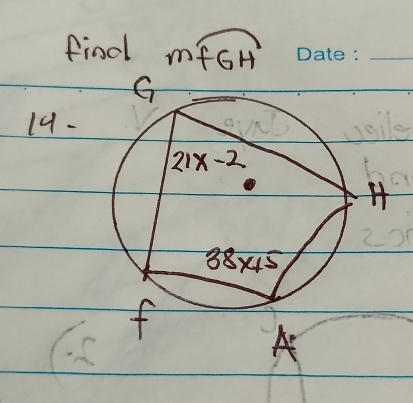 find mfGH Date :
G
14-
21x-2
H
38x+5
f
A
2.